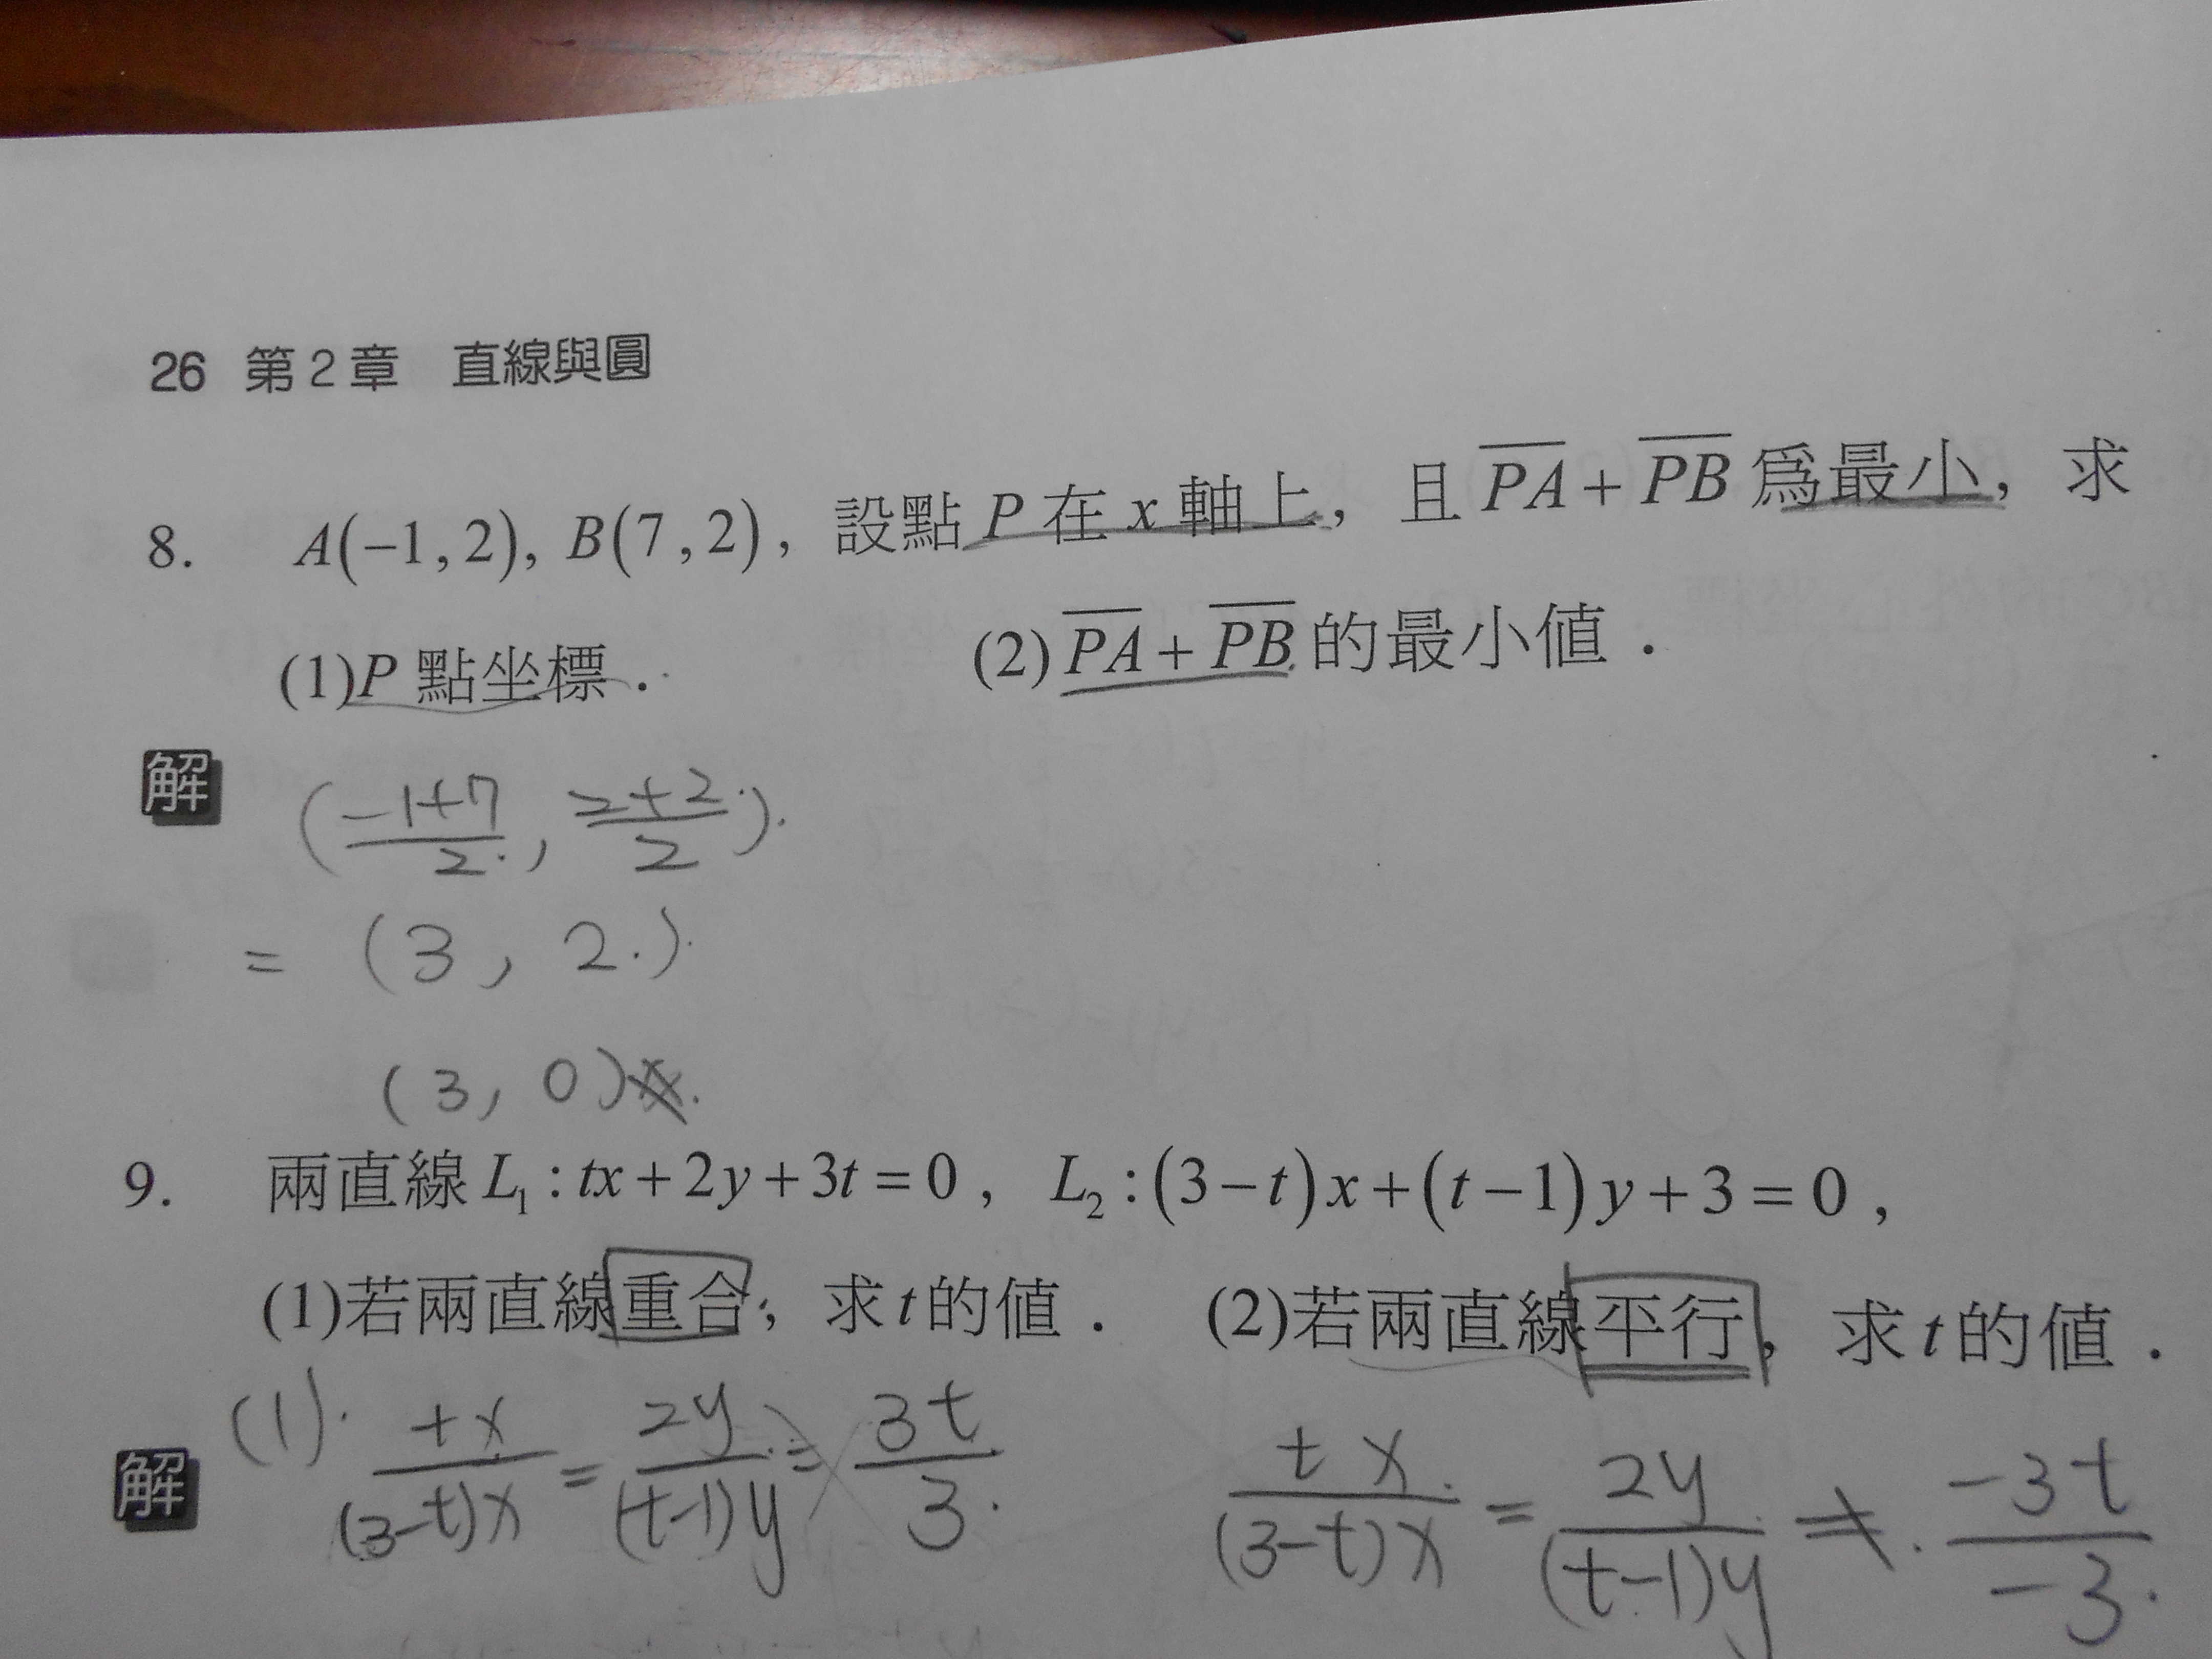 26 第2章 直線與圓
8. A(−1,2), B(7,2)，設點 P 在 x 軸上，且 \overline{PA}+\overline{PB} 爲最小，求
(1)P 點坐標． (2)\overline{PA}+\overline{PB} 的最小値．
解 (\frac{-1+7}{2}, \frac{2+2}{2})
= (3, 2)
(3, 0)
9. 兩直線 L₁:tx+2y+3t=0， L₂:(3−t)x+(t−1)y+3=0，
(1)若兩直線重合，求 t 的値． (2)若兩直線平行，求 t 的値．
解 (1). \frac{tx}{(3-t)x} = \frac{2y}{(t-1)y} = \frac{3t}{3} \frac{tx}{(3-t)x} = \frac{2y}{(t-1)y} ≠ \frac{-3t}{-3}